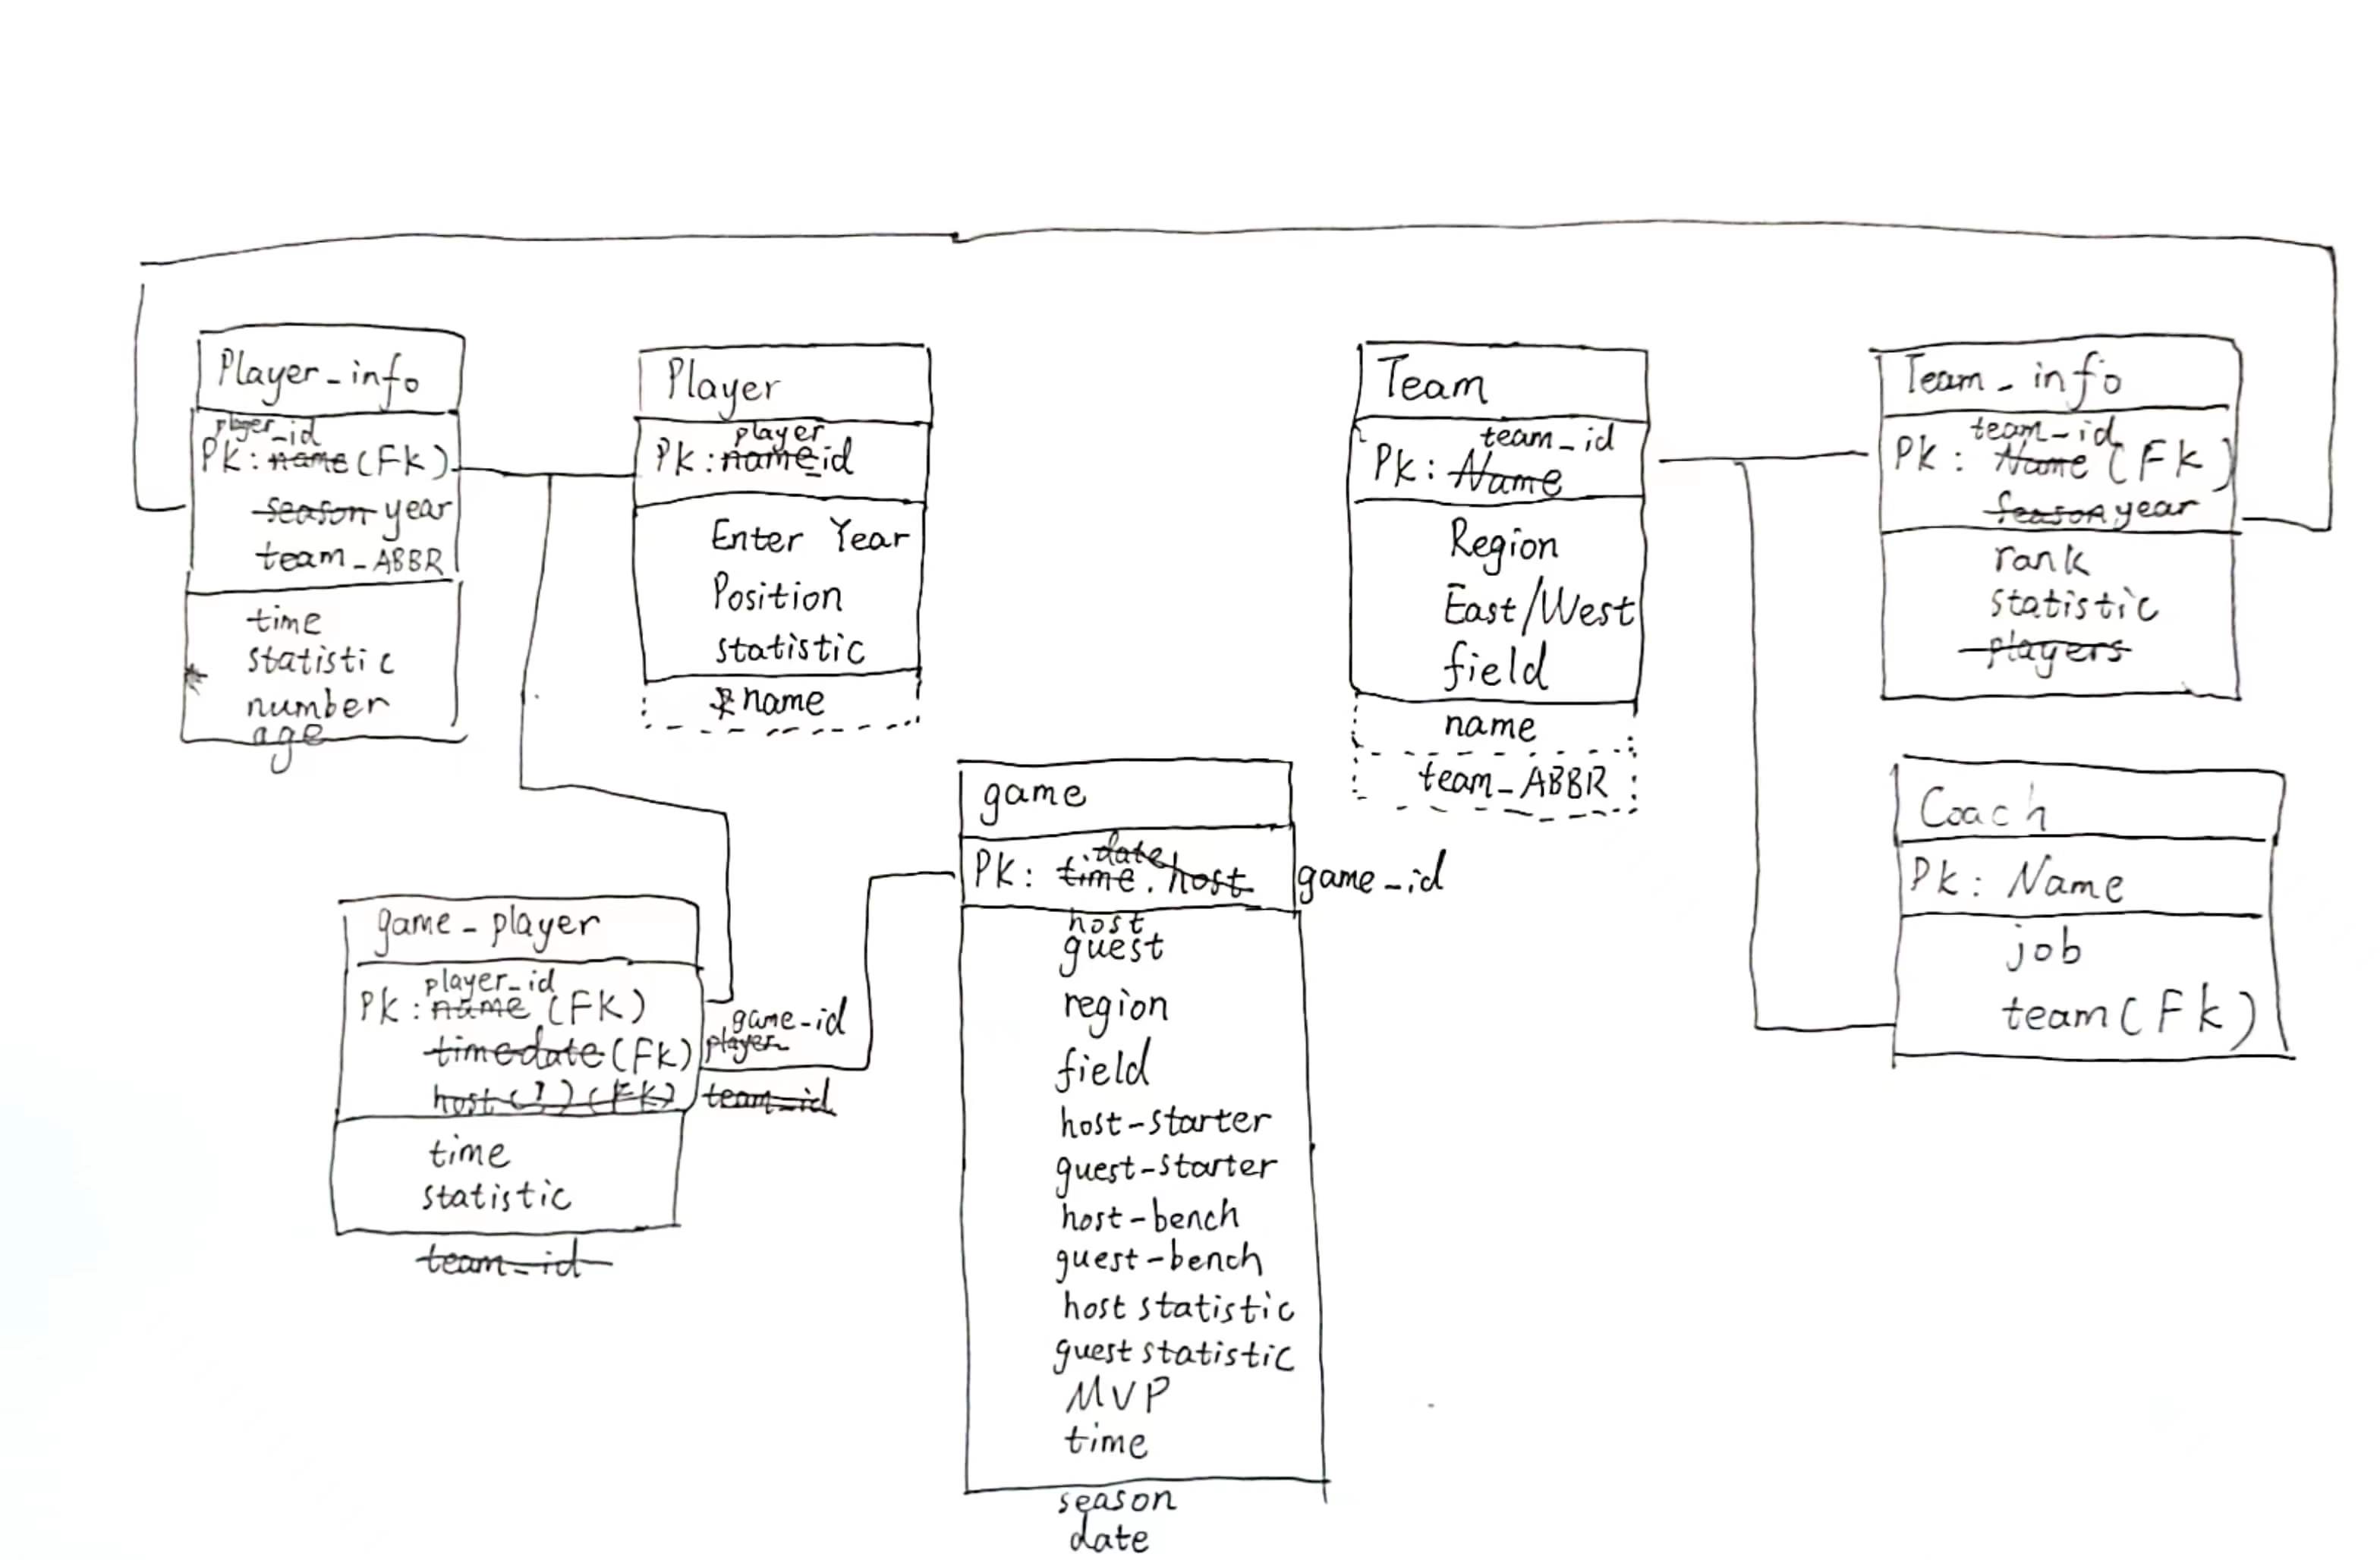 Player_info
player_id
PK: name (FK)
season year
team_ABBR
time
statistic
number
age
Player
player
PK: name_id
Enter Year
Position
statistic
* name
Team
team_id
PK: Name
Region
East/West
field
name
team_ABBR
Team_info
team_id
PK: Name (FK)
season year
rank
statistic
players
Coach
PK: Name
job
team (FK)
game
date
PK: time. host game_id
host
guest
region
field
host-starter
guest-starter
host-bench
guest-bench
host statistic
guest statistic
MVP
time
season
date
game_player
player_id
PK: name (FK)
game_id
time date (FK) player
host (?) (FK) team_id
time
statistic
team_id